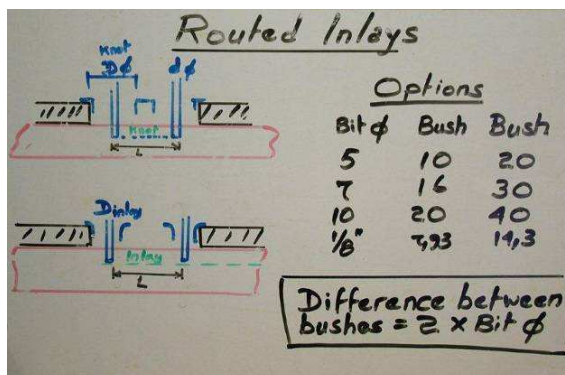 Routed Inlays
Knot
DØ dØ
Knot
L
Dinlay
Inlay
L
Options
Bitø Bush Bush
5 10 20
7 16 30
10 20 40
1/8" 7,93 14,3
Difference between
bushes = 2 x Bit ø